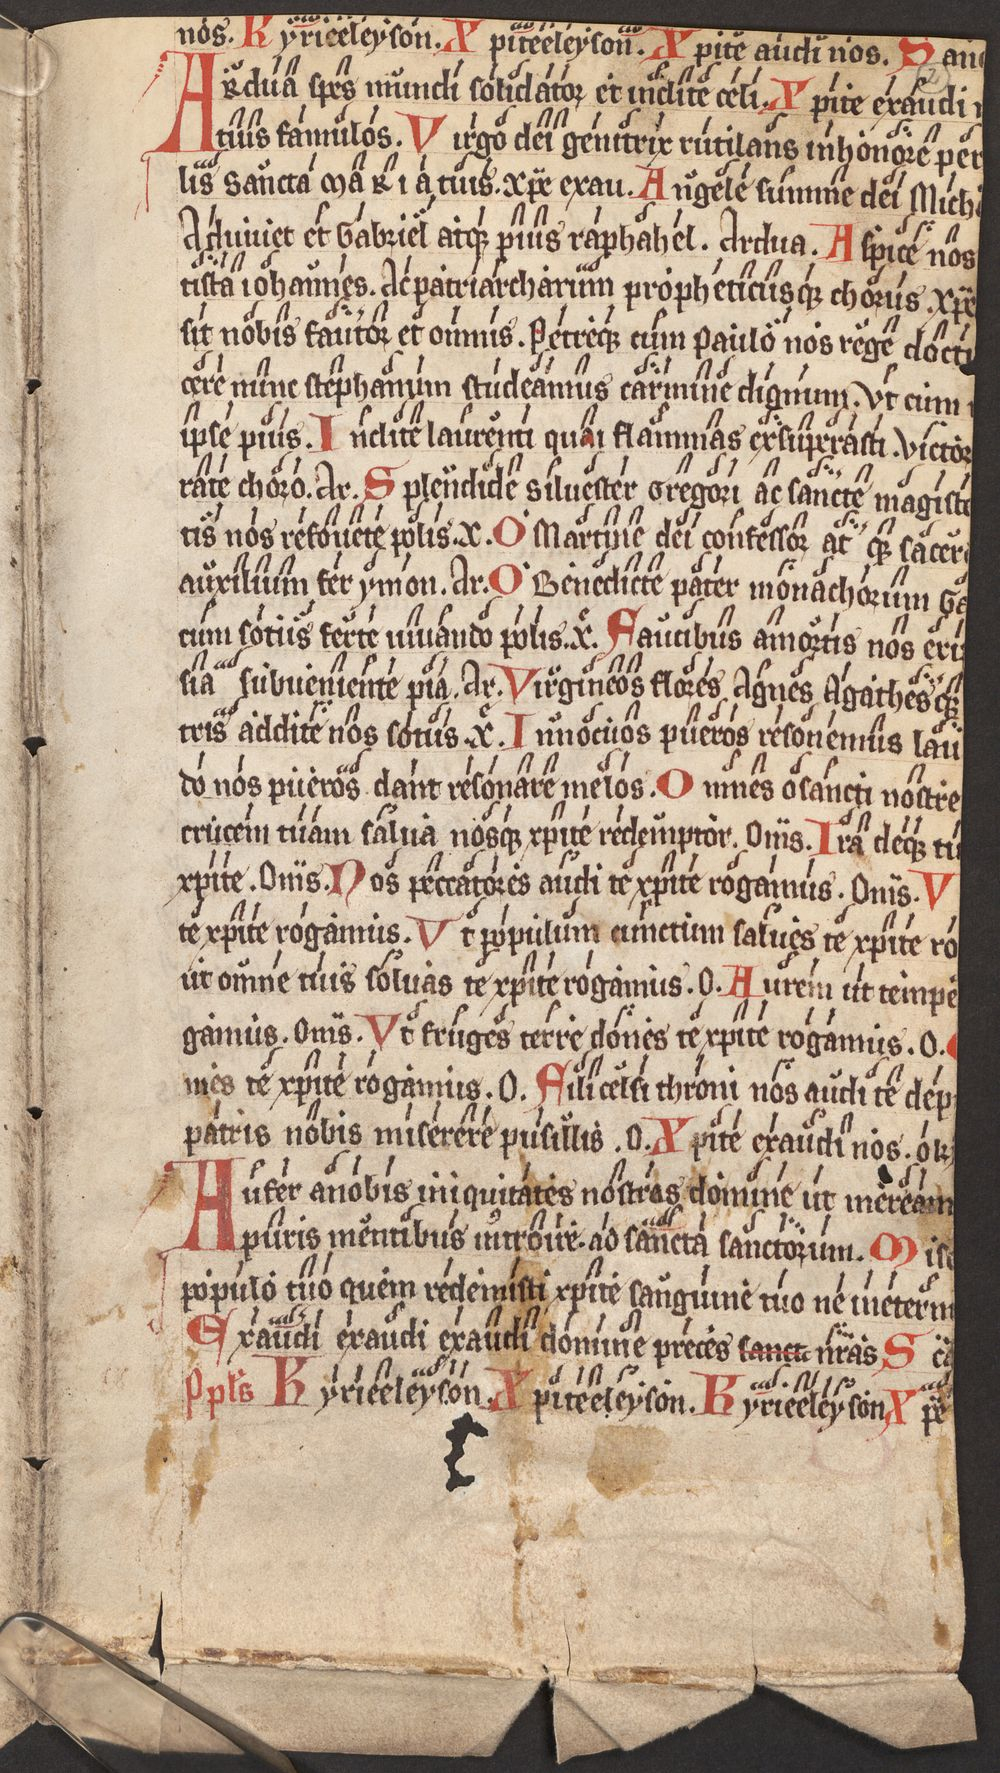 nos. Kyrieeleyson. Xpiteeleyson. Xpite audi nos. San
Ardua spes mundi solidator et inclite celi. Xpite exaudi
tuus famulos. Virgo dei genitrix rutilans inhonore per
lis sancta MARIA tuis. xpe exau. Angele summe dei Mich
Adiuuet et Gabriel atq; pius raphahel. Ardua. Aspice nos
tista iohannes. Ac patriarcharum propheticusq; chorus. xpe
sit nobis fautor et omnis. Petreq; cum paulo nos rege docti
cere nunc stephanum studeamus carmine dignum. Vt cum
ipse pius. Inclite laurenti quai flammas exsuperasti. Victor
rate choro. Ar. Splendide siluester Gregori ac sancte magiste
tis nos refouete polis. X. O Martine dei confessor at q; sacer
auxilium fer ymon. Ar. O Benedicte pater monachorum Ga
cum sotiis ferte iuuando polis. X. Faucibus amortis nos eri
sia subueniente pia. Ar. Virgineos flores Agnes Agathesq;
tris addite nos sotiis. X. Innocuos pueros resonemus lau
do nos pueros dant resonare melos. Omnes o sancti nostre
crucem tuam salua nosq; xpite redemptor. Oms. Ira deq; tu
xpite. Oms. Nos peccatores audi te xpite rogamus. Oms. V
te xpite rogamus. Vt populum cunctum salues te xpite ro
ut omne tuis soluas te xpite rogamus. O. Aurem ut tempe
gamus. Oms. Vt fruges terre dones te xpite rogamus. O.
nies te xpite rogamus. O. Fili celsi throni nos audi te dep
patris nobis miserere pusillis. O. Xpite exaudi nos. o k
Aufer anobis iniquitates nostras domine ut meream
puris mentibus introire ad sancta sanctorum. Mise
populo tuo quem redemisti xpite sanguine tuo ne ineternu
Exaudi exaudi exaudi domine preces sancte nras S ca
Ppls Kyrieeleyson. Xpiteeleyson. Kyrieeleyson Xpe